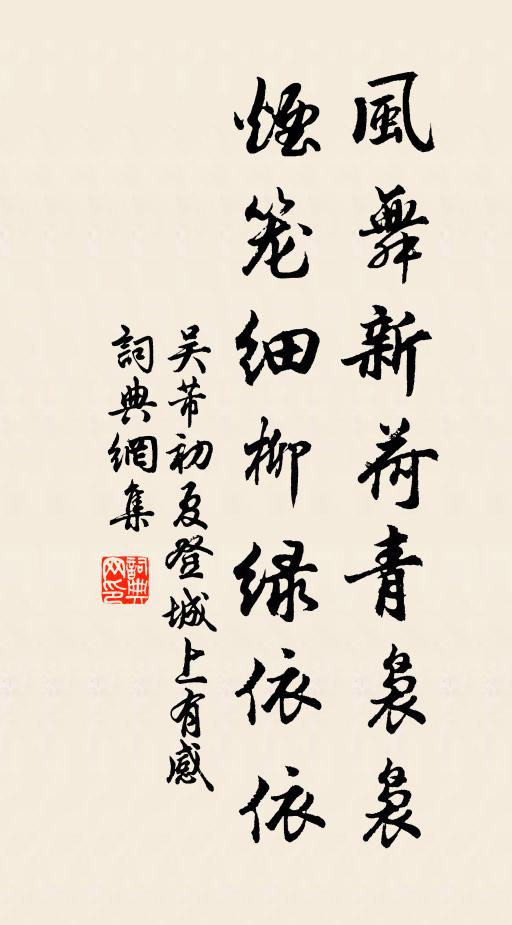 風舞新荷青裊裊
煙笼细柳绿依依
吴芾初夏登城上有感
詞典網集
詞典网印